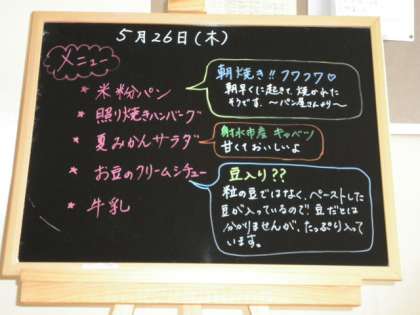 5月26日(木)
メニュー
* 米粉パン
* 照り焼きハンバーグ
* 夏みかんサラダ
* お豆のクリームシチュー
* 牛乳
朝焼き!! フワフワ♡
朝早くに起きて、焼かれた
そうです。 〜パン屋さんより〜
射水市産 キャベツ
甘くておいしいよ
豆入り??
粒の豆ではなく、ペーストした
豆が入っているので、豆だとは
分かりませんが、たっぷり入って
います。